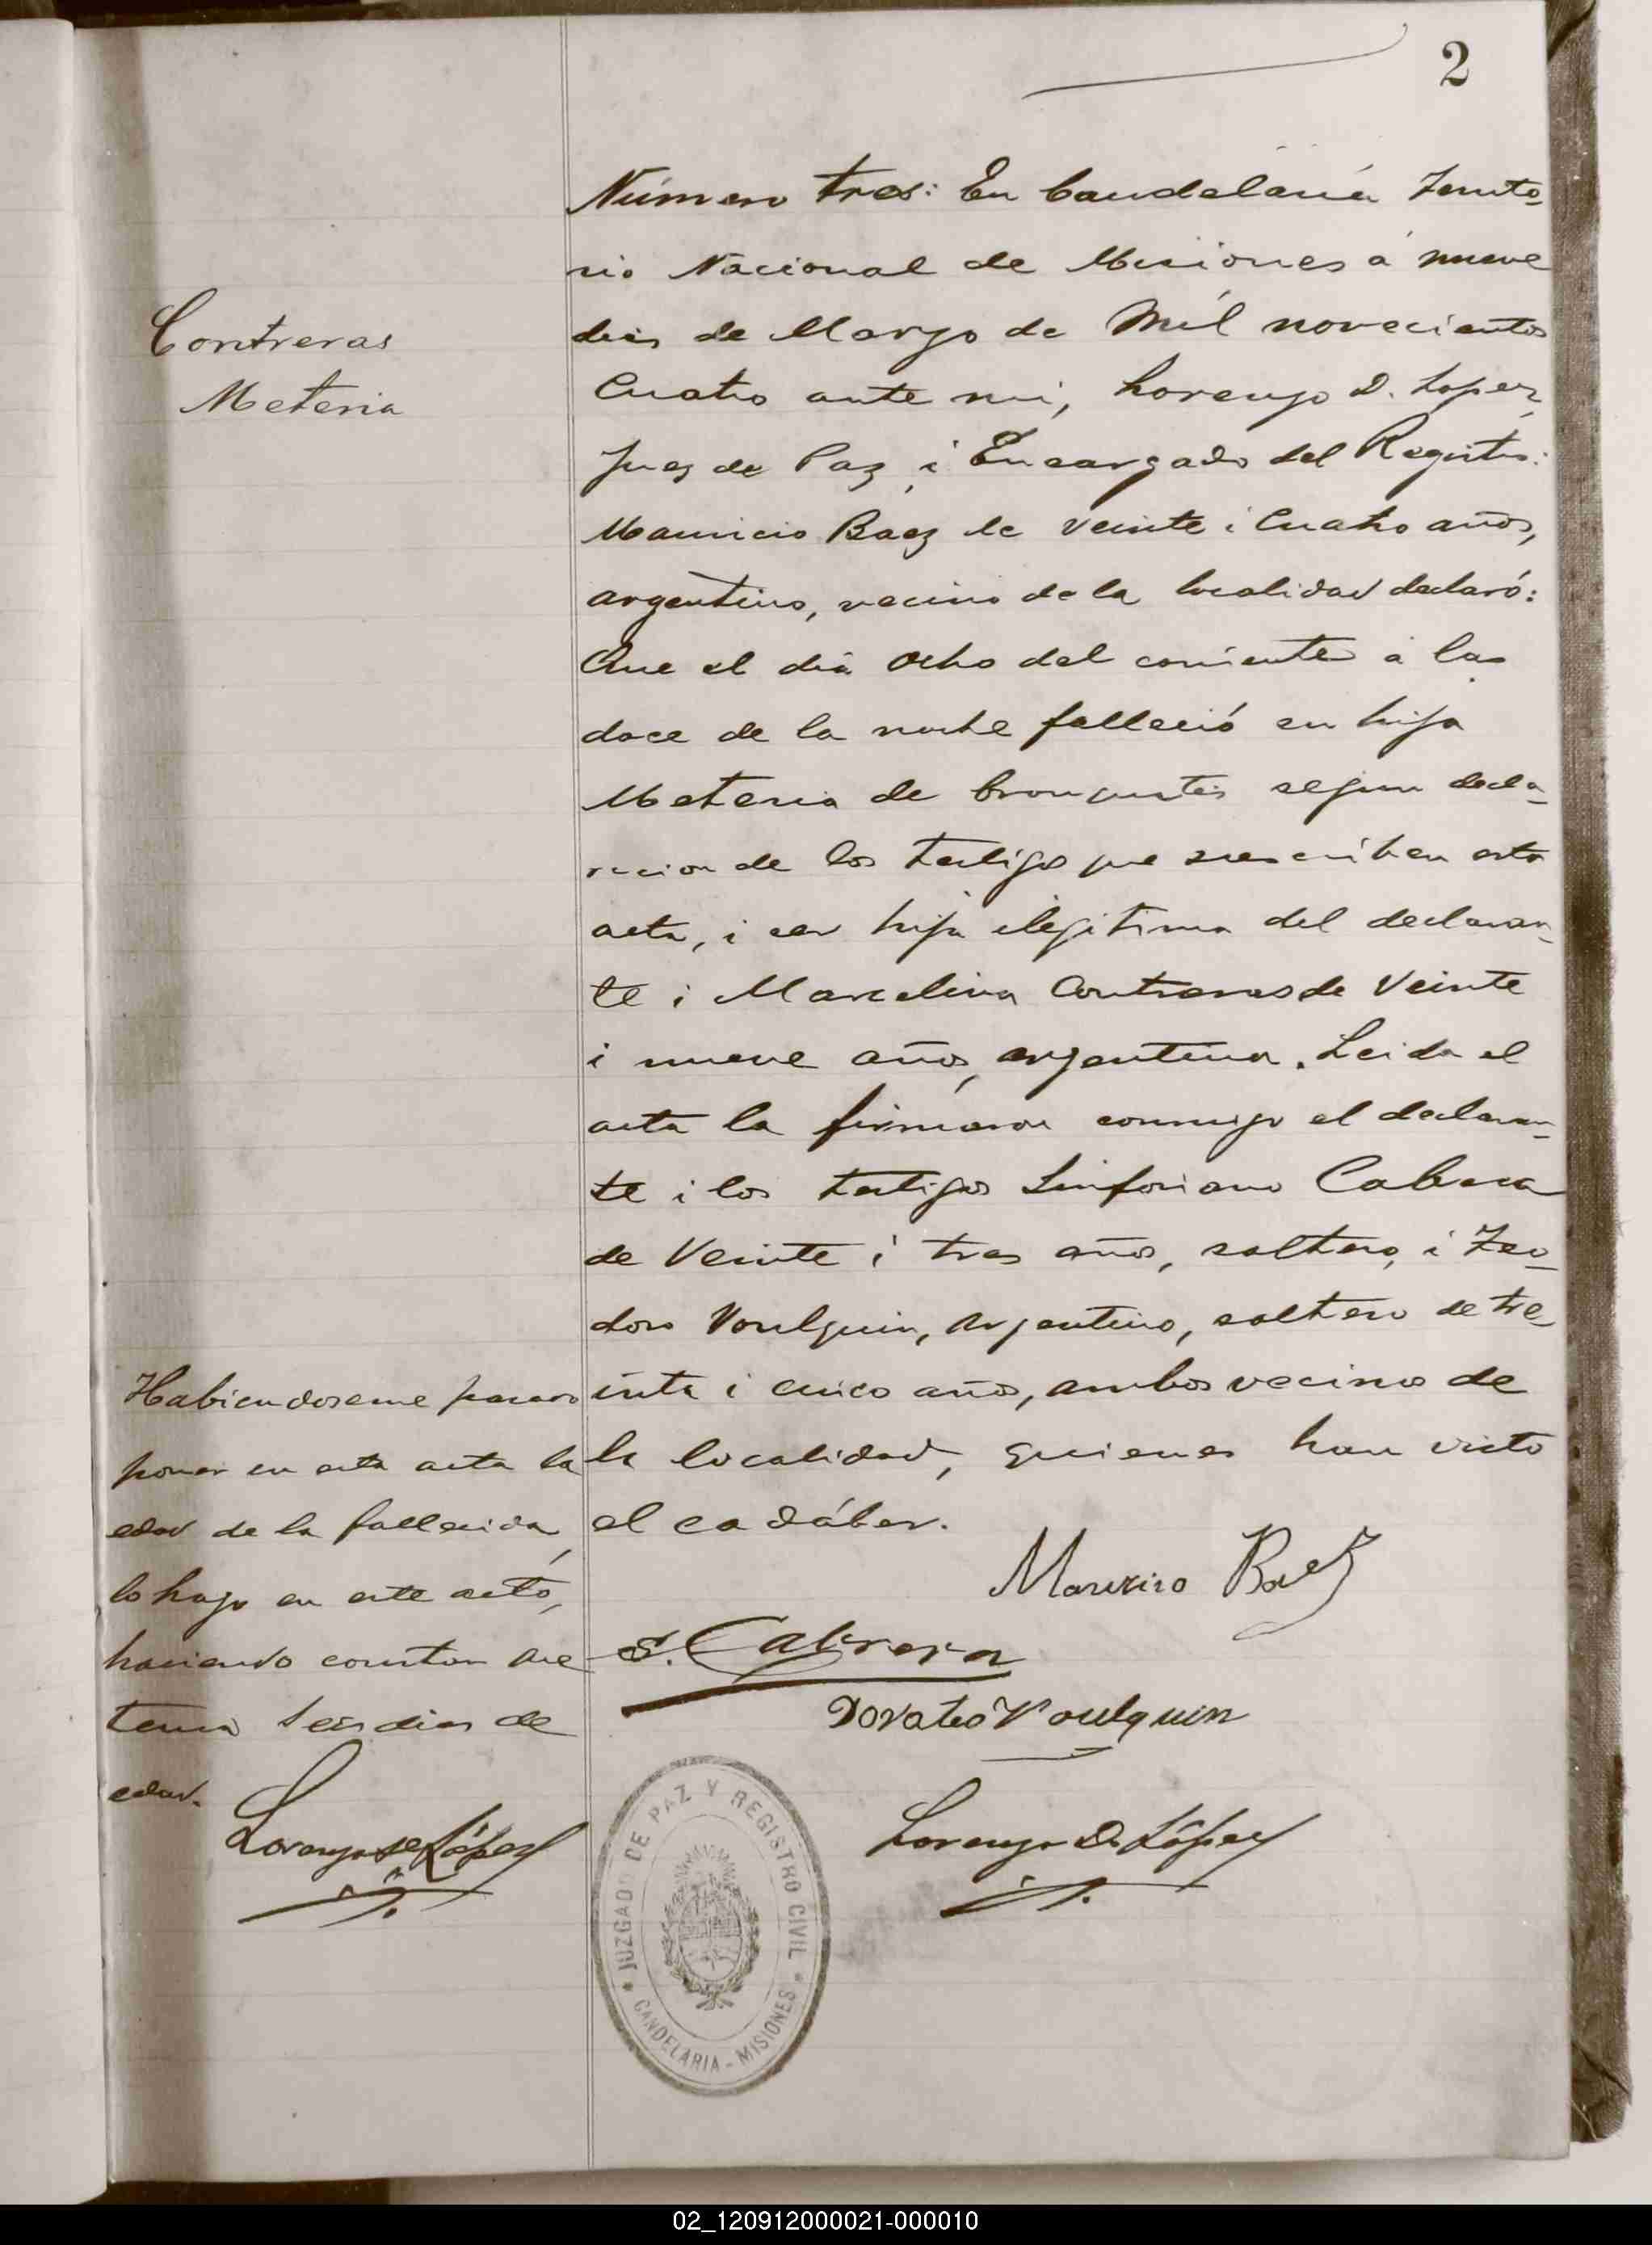 2
Contreras
Meteria
Número tres: En Candelaria Territo-
rio Nacional de Misiones á nueve
dias de Marzo de Mil novecientos
Cuatro ante mi, Lorenzo D. Lopez,
Juez de Paz, i Encargado del Registro:
Mauricio Baez de veinte i Cuatro años,
argentino, vecino de la localidad declaró:
Que el dia Ocho del corriente á las
doce de la noche falleció su hija
Meteria de bronquitis segun decla-
racion de los testigos que suscriben esta
acta, i ser hija ilegitima del declaran-
te i Marcelina Contreras de Veinte
i nueve años, argentina. Leida el
acta la firmaron conmigo el declaran-
te i los testigos Sinforiano Cabrera
de Veinte i tres años, soltero, i Teo-
doro Voulquin, Argentino, soltero de tre-
inta i cinco años, ambos vecinos de
la localidad, quienes han visto
el cadáber.
Habiendoseme pasado
poner en esta acta la
edad de la fallecida,
lo hago en este acto,
haciendo constar que
tenia seis dias de
edad.
Mauricio Baez
S. Cabrera
Voulquin
Lorenzo D. López
Lorenzo D. López
JUZGADO DE PAZ Y REGISTRO CIVIL
* CANDELARIA - MISIONES *
02_120912000021-000010